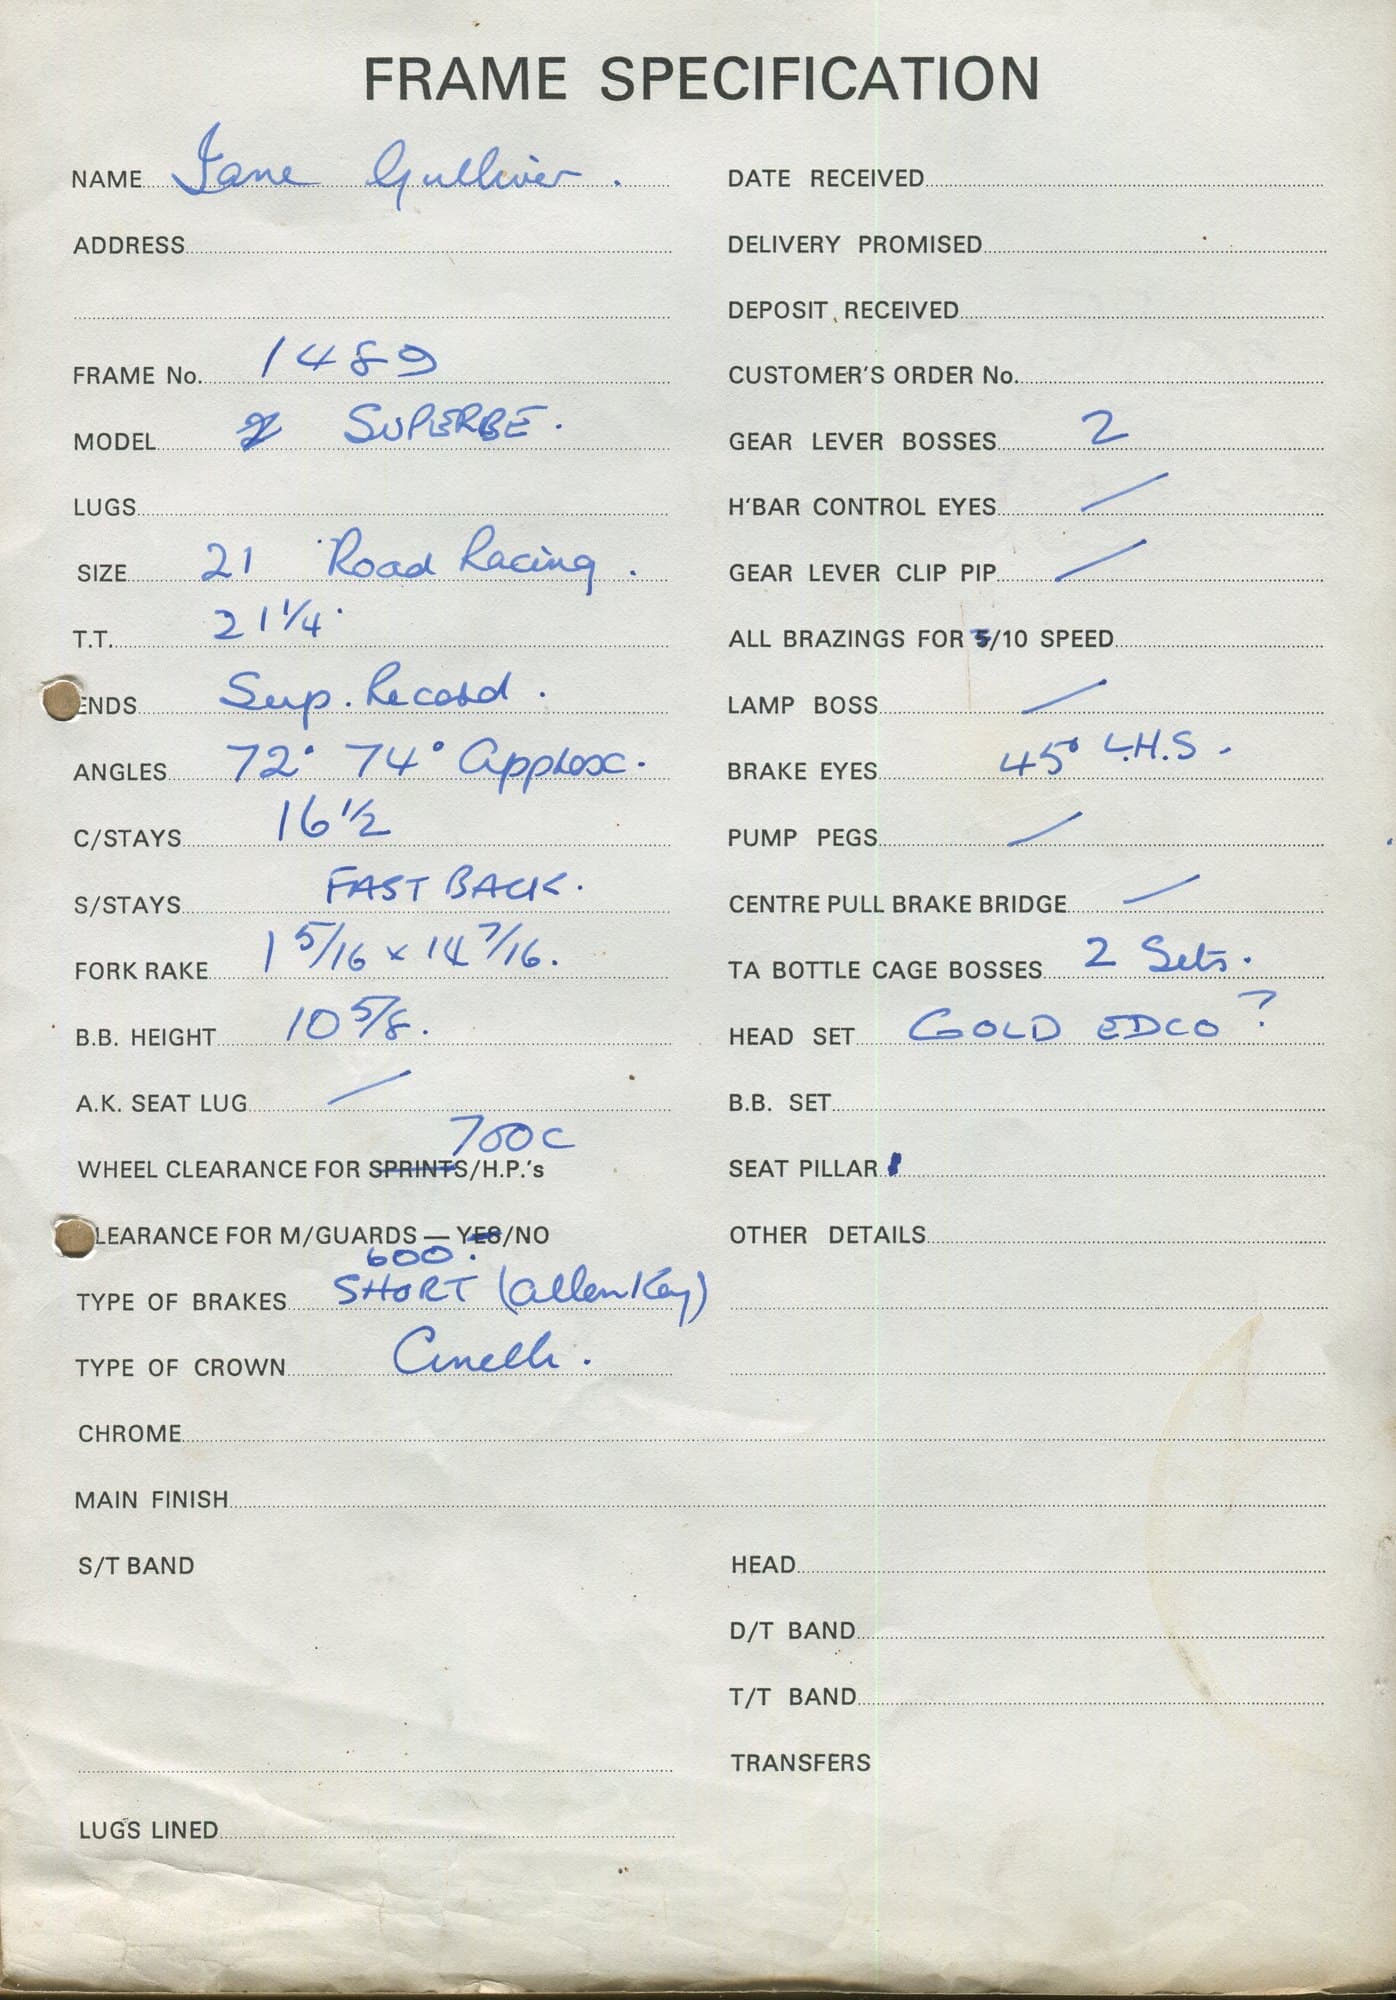 FRAME SPECIFICATION
NAME Jane Gulliver .
ADDRESS
FRAME No. 1489
MODEL SUPERBE .
LUGS
SIZE 21 Road Racing .
T.T. 21 1/4
ENDS Sup. Record .
ANGLES 72° 74° Approx .
C/STAYS 16 1/2
S/STAYS FAST BACK .
FORK RAKE 1 5/16 x 14 7/16 .
B.B. HEIGHT 10 5/8 .
A.K. SEAT LUG /
700C
WHEEL CLEARANCE FOR SPRINTS/H.P.'s
LEARANCE FOR M/GUARDS — YES/NO
600 .
TYPE OF BRAKES SHORT (allen Key)
TYPE OF CROWN Cinelli .
CHROME
MAIN FINISH
S/T BAND
LUGS LINED
DATE RECEIVED
DELIVERY PROMISED
DEPOSIT RECEIVED
CUSTOMER'S ORDER No.
GEAR LEVER BOSSES 2
H'BAR CONTROL EYES /
GEAR LEVER CLIP PIP /
ALL BRAZINGS FOR 5/10 SPEED
LAMP BOSS /
BRAKE EYES 45° L.H.S .
PUMP PEGS /
CENTRE PULL BRAKE BRIDGE /
TA BOTTLE CAGE BOSSES 2 Sets .
HEAD SET GOLD EDCO ?
B.B. SET
SEAT PILLAR
OTHER DETAILS
HEAD
D/T BAND
T/T BAND
TRANSFERS